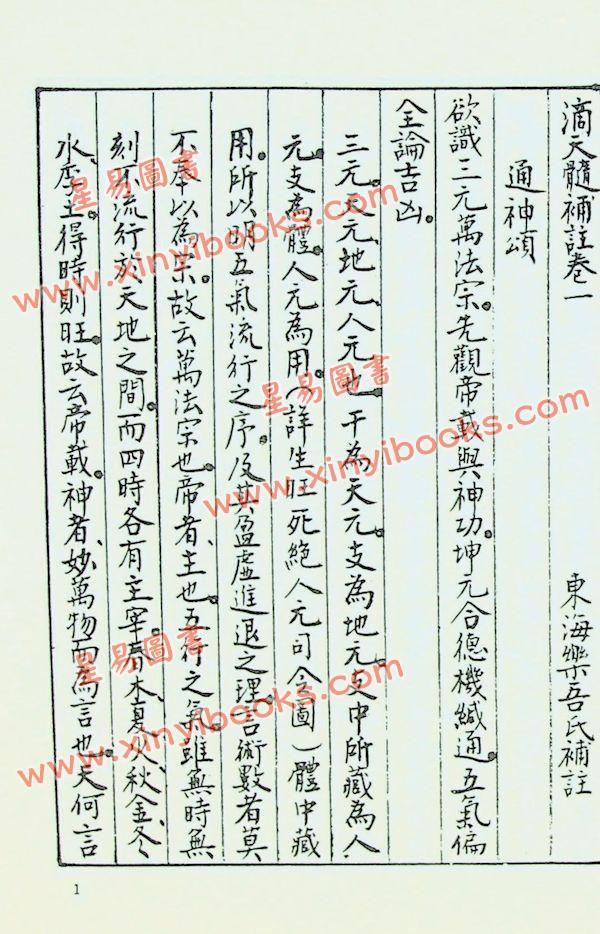 滴天髓補註卷一　東海樂吾氏補註
通神頌
欲識三元萬法宗。先觀帝載與神功。坤元合德機緘通。五氣偏
全論吉凶。
三元、天元、地元、人元也。干為天元。支為地元。支中所藏為人
元。支為體。人元為用。（詳生旺死絕人元司令圖）體中藏
用。所以明五氣流行之序。及其盈虛進退之理。言術數者莫
不奉以為宗。故云萬法宗也。帝者、主也。五行之氣。雖無時無
刻不流行於天地之間。而四時各有主宰。春木、夏火、秋金、冬
水、季土。得時則旺。故云帝載。神者、妙萬物而為言也。天何言
1
星易圖書
www.xinyibooks.com
星易圖書
www.xinyibooks.com
星易圖書
www.xinyibooks.com